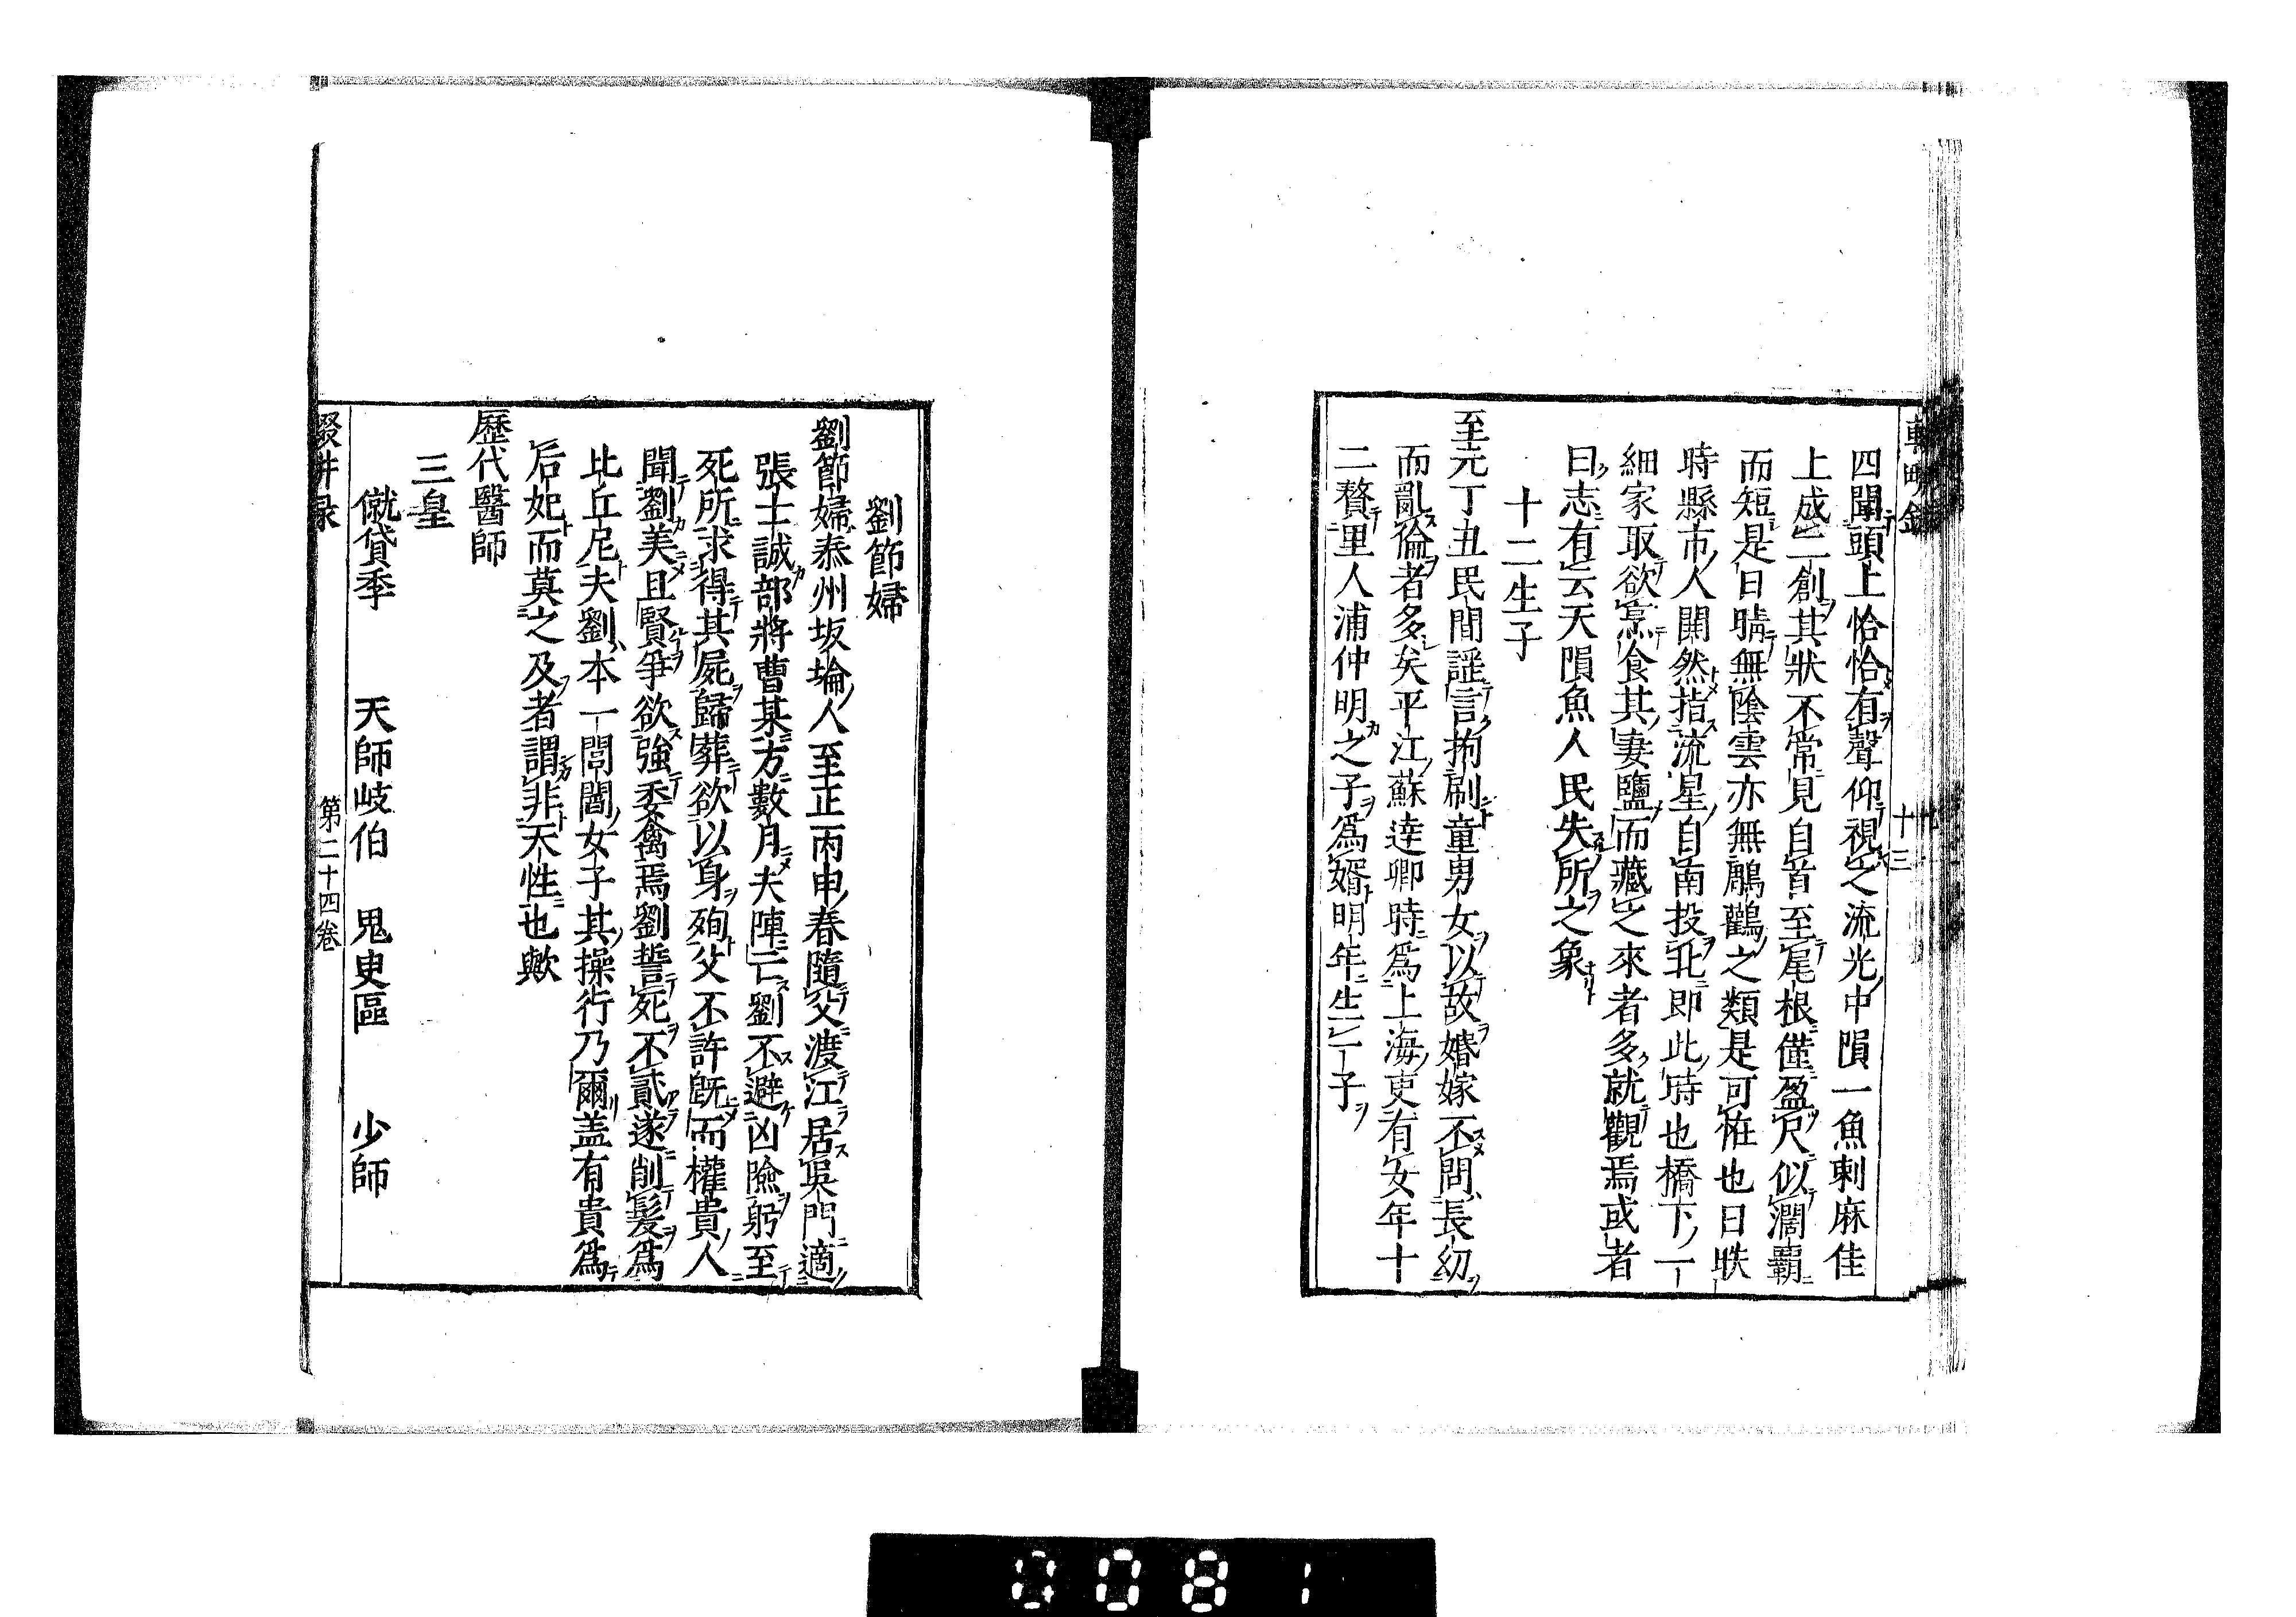 十三
四闃頭上恰恰有聲仰視之流光中隕一魚刺麻佳
上成二創其狀不常見自首至尾根僅盈尺似濶霸
而短是日晴無陰雲亦無鵰鸛之類是可恠也日昳
時縣市人閧然指流星自南投北即此時也橋下一
細家取欲烹食其妻鹽而藏之來者多就觀焉或者
曰志有云天隕魚人民失所之象
十二生子
至元丁丑民間謡言拘刷童男女以故婚嫁不問長幼
而亂倫者多矣平江蘇達卿時爲上海吏有女年十
二贅里人浦仲明之子爲婿明年生一子
劉節婦
劉節婦泰州坂塸人至正丙申春隨父渡江居吳門適
張士誠部將曹某方數月夫陣亡劉不避凶險躬至
死所求得其屍歸葬欲以身殉父不許既而權貴人
聞劉美且賢爭欲強委禽焉劉誓死不貳遂削髮爲
比丘尼夫劉本一閭閻女子其操行乃爾盖有貴爲
后妃而莫之及者謂非天性也歟
歷代醫師
三皇
僦貸季　天師岐伯　鬼臾區　少師
第二十四卷